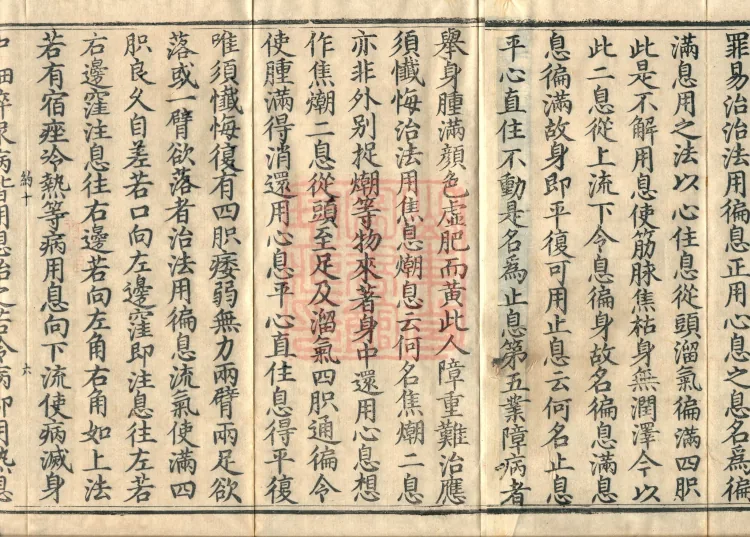 罪易治治法用徧息正用心息之息名爲徧
滿息用之法以心住息從頭溜氣徧滿四胑
此是不解用息使筋脉焦枯身無潤澤今以
此二息從上流下令息徧身故名徧息滿息
息徧滿故身即平復可用止息云何名止息
平心直住不動是名爲止息第五業障病者
舉身腫滿顔色虛肥而黃此人障重難治應
須懺悔治法用焦息爤息云何名焦爤二息
亦非外别捉爤等物來著身中還用心息想
作焦爤二息從頭至足及溜氣四胑通徧令
使腫滿得消還用心息平心直住息得平復
唯須懺悔復有四胑痿弱無力兩臂兩足欲
落或一臂欲落者治法用徧息流氣使滿四
胑良久自差若口向左邊窪即注息往左若
右邊窪注息往右邊若向左角右角如上法
約十 六
若有宿痤冷熱等病用息向下流使病滅身
病皆用息治之若冷病即用熱息